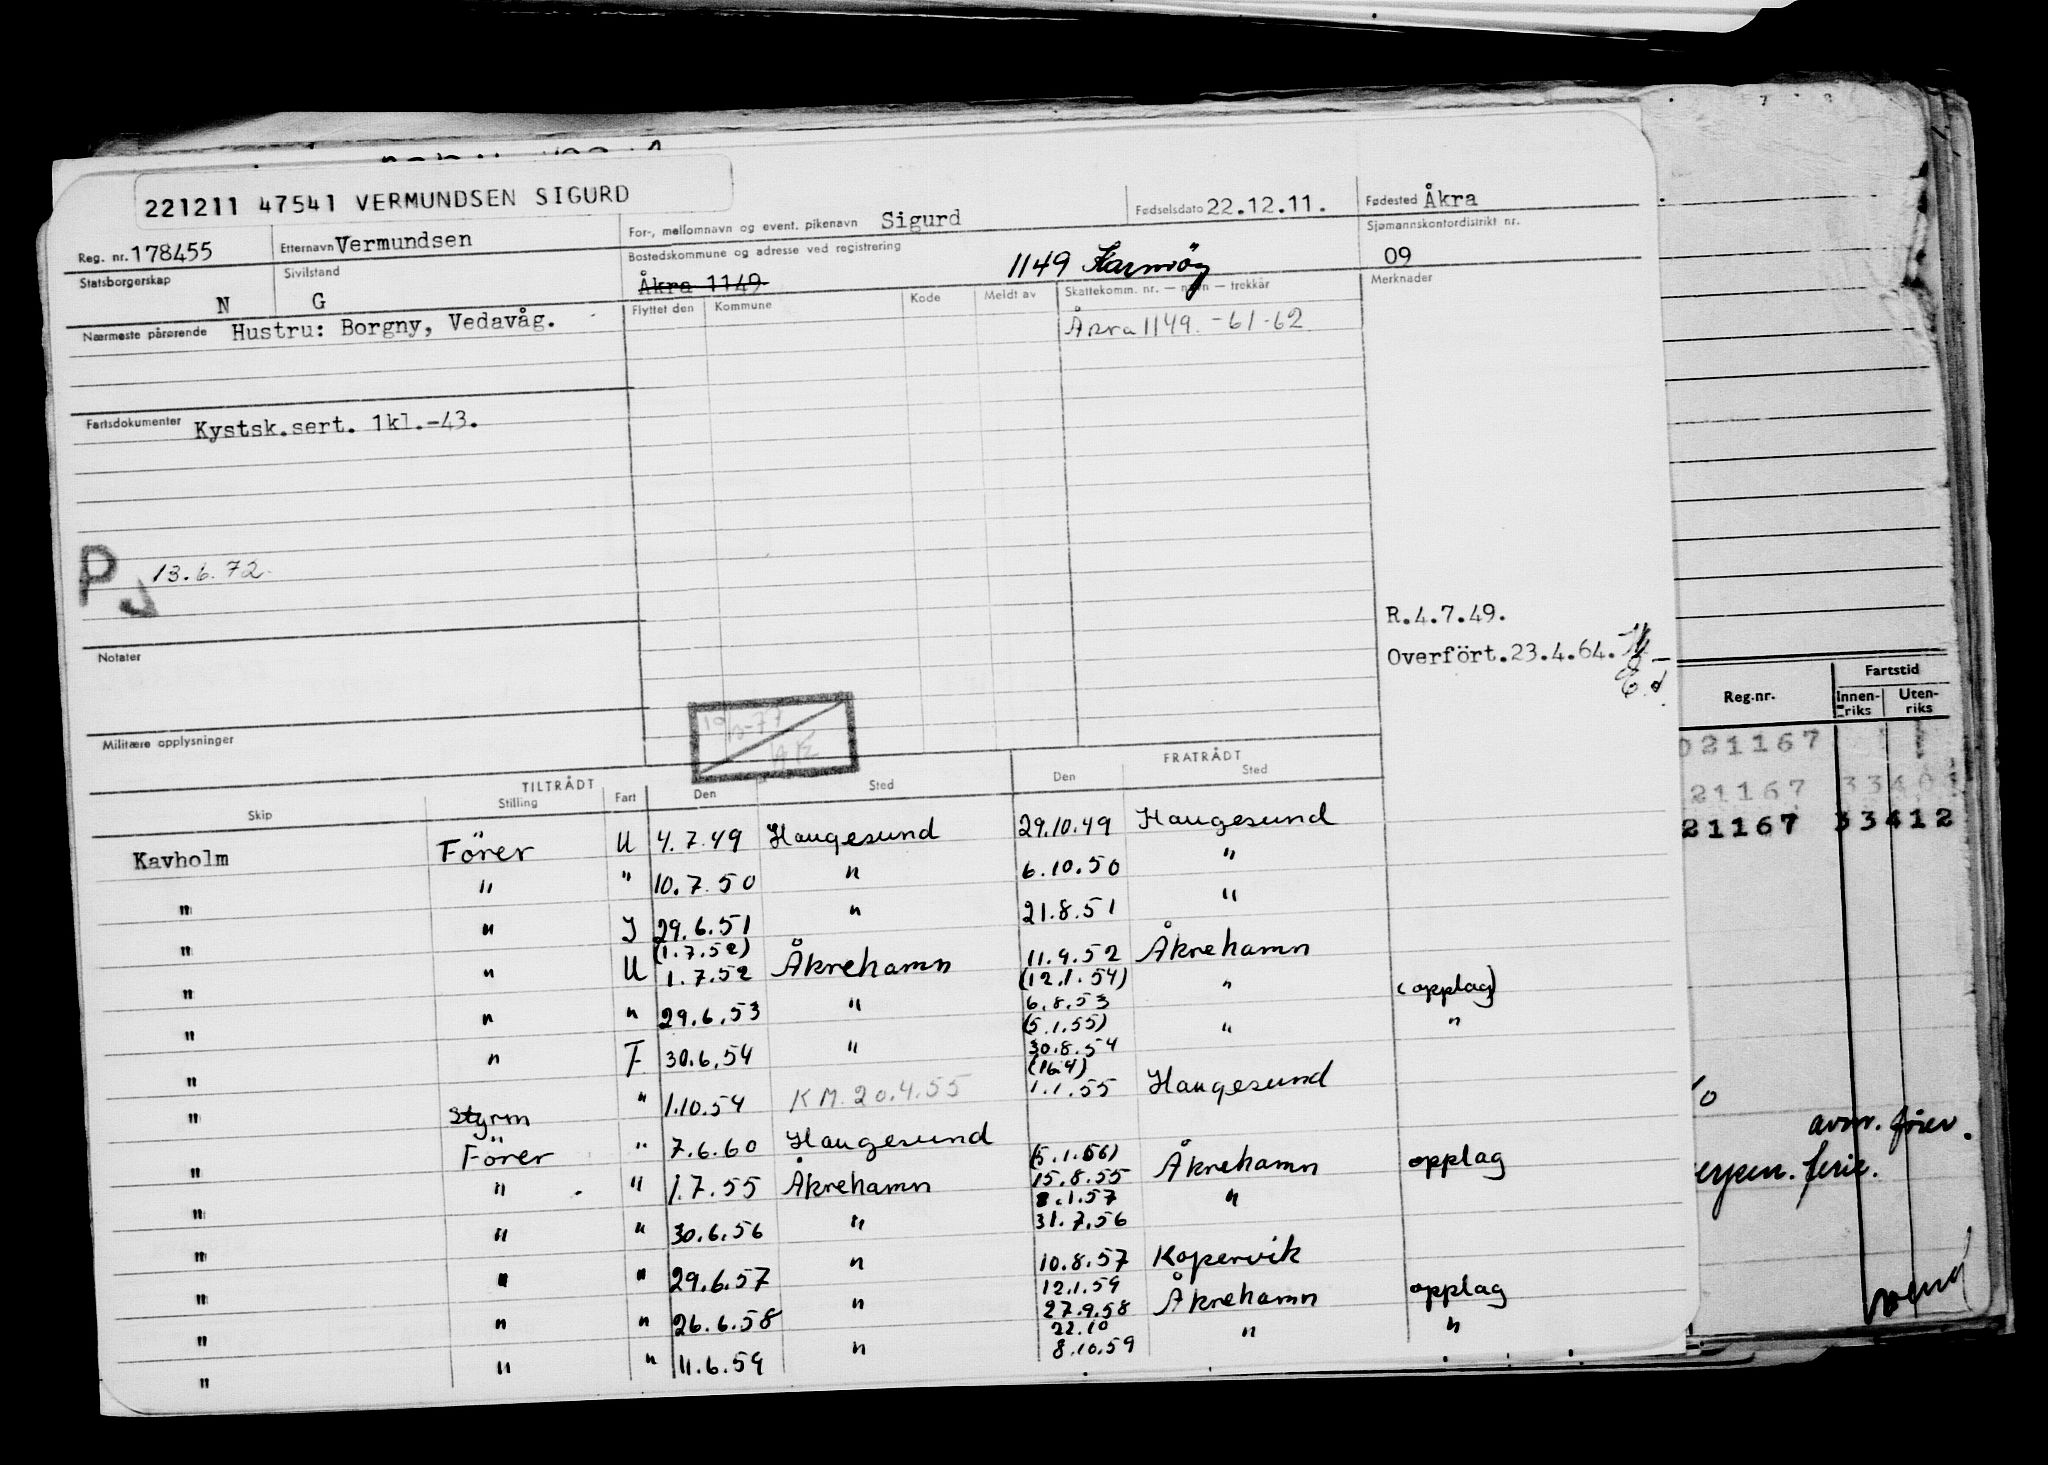 221211 47541 VERMUNDSEN SIGURD
Reg. nr. 178455 Etternavn Vermundsen For-, mellomnavn og event. pikenavn Sigurd Fødselsdato 22.12.11. Fødested Åkra
Statsborgerskap N Sivilstand G Bostedskommune og adresse ved registrering Åkra 1149 1149 Karmöy Sjømannskontordistrikt nr. 09
Nærmeste pårørende Hustru: Borgny, Vedavåg. Flyttet den Kommune Kode Meldt av Skattekomm. nr. — navn — trekkår Merknader
Åkra 1149. -61-62
Fartsdokumenter Kystsk.sert. 1kl.-43.
P J 13.6.72.
R.4.7.49.
Overfört.23.4.64.
Notater
Militære opplysninger
TILTRÅDT FRATRÅDT
Skip Stilling Fart Den Sted Den Sted
Kavholm Förer U 4.7.49 Haugesund 29.10.49 Haugesund
" " " 10.7.50 " 6.10.50 "
" " I 29.6.51 " 21.8.51 "
(1.7.52)
" " U 1.7.52 Åkrehamn 11.9.52 Åkrehamn
(12.1.54)
" " " 29.6.53 " 6.8.53 " (opplag)
(5.1.55)
" " F 30.6.54 " 30.8.54 " "
(16.4)
" Styrm " 1.10.54 KM.20.4.55 1.1.55 Haugesund
" Förer " 7.6.60 Haugesund
(5.1.56)
" " " 1.7.55 Åkrehamn 15.8.55 Åkrehamn opplag
8.1.57
" " " 30.6.56 " 31.7.56 "
" " " 29.6.57 " 10.8.57 Kopervik
12.1.59
" " " 26.6.58 " 27.9.58 Åkrehamn opplag
22.10
" " " 11.6.59 " 8.10.59 " "
Reg.nr. Fartstid
Innen-riks Uten-riks
021167
21167 33401
21167 33412
avm. förer.
ferie.